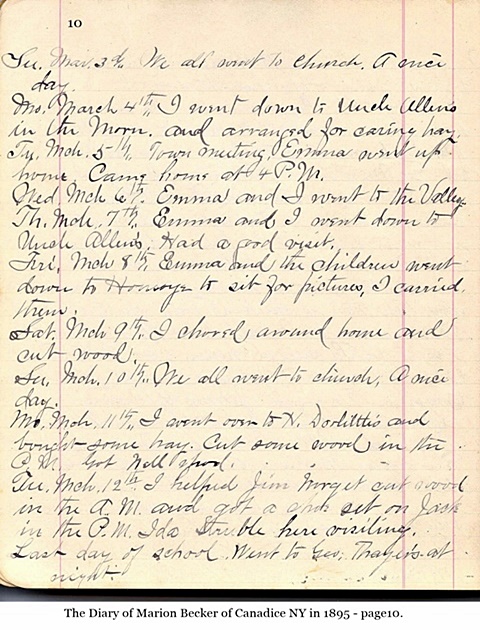 10
Su. Mar. 3rd, We all went to church. A nice
day.
Mo. March 4th, I went down to Uncle Allens
in the Morn. and arranged for caring hay.
Tu. Mch. 5th, Town meeting, Emma went up
home. Came home at 4 P.M.
Wed Mch 6th. Emma and I went to the Valley
Th. Mch. 7th, Emma and I went down to
Uncle Allens, Had a good visit.
Fri. Mch 8th, Emma and the children went
down to Honeoye to sit for pictures, I carried
them.
Sat. Mch 9th. I chored around home and
cut wood.
Su. Mch. 10th, We all went to church, A nice
day.
Mo. Mch. 11th, I went over to H. Doolittle's and
bought some hay. Cut some wood in the
P.M. Got Nell
Tue. Mch. 12th. I helped Jim cut wood
in the A.M. and got a set on Jack
in the P.M. Ida Struble here visiting.
Last day of school. Went to Geo. Thayers at
night.
The Diary of Marion Becker of Canadice NY in 1895 - page10.